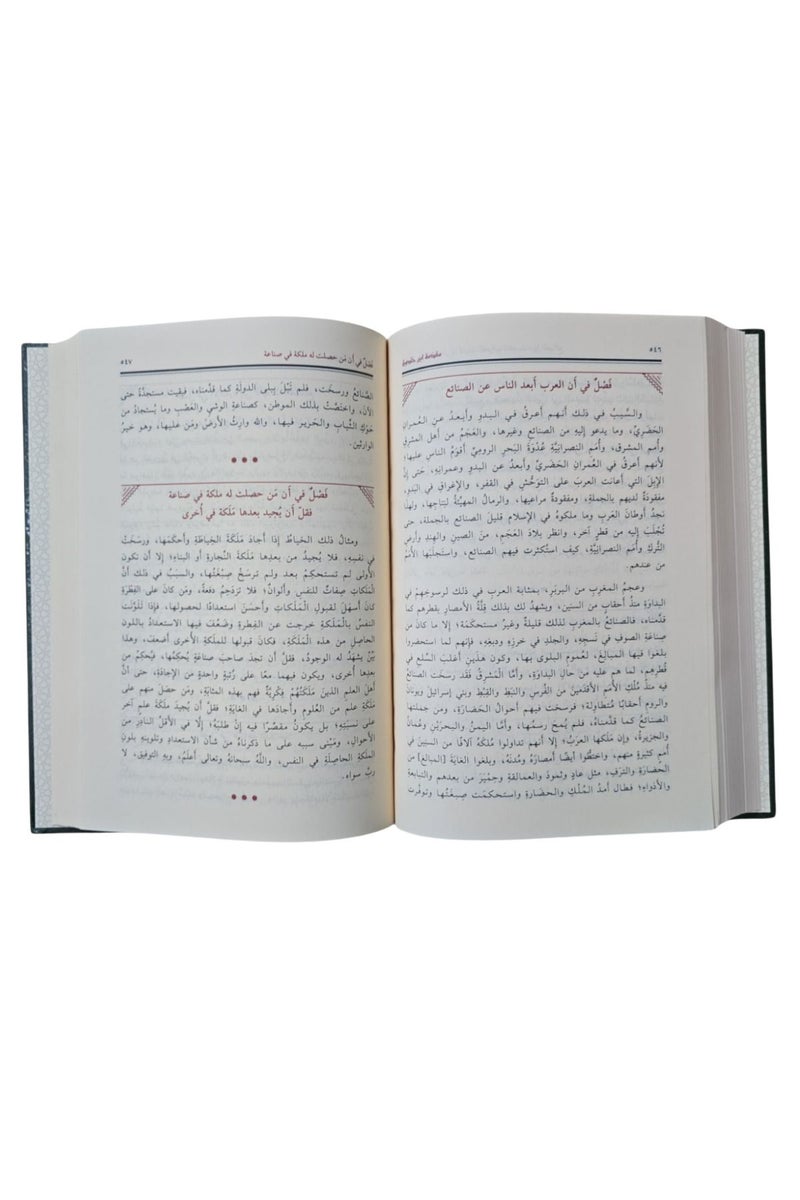 ٥٤٦
مقدمة ابن خلدون
فَصْلٌ في أن العرب أبعد الناس عن الصنائع
والسَّببُ في ذلك أنهم أعرقُ في البدوِ وأبعدُ عن العُمرانِ
الحَضريِّ، وما يدعو إليهِ من الصنائعِ وغيرها، والعَجَمُ من أهل المشرقِ
وأمم المشرق، وأمَم النصرانيَّةِ عُدْوَةَ البَحرِ الروميِّ أقوَمُ الناس عليها؛
لأنهم أعرقُ في العُمرانِ الحَضَريِّ وأبعدُ عن البدوِ وعمرانِهِ، حَتى إنَّ
الإبلَ التي أعانت العربَ على التوَحُّشِ في القفرِ، والإغراقِ في البَدوِ،
مفقودةٌ لديهم بالجملةِ، ومفقودةٌ مراعيها، والرمالُ المهيَّئةُ لِنتاجِها، ولهذا
نجدُ أوطانَ العَربِ وما ملكوهُ في الإسلام قليلَ الصنائعِ بالجملة، حتى
تُجْلَبَ إليه من قطرٍ آخر، وانظر بلادَ العَجَمِ، منَ الصينِ والهندِ وأرضِ
التُّركِ وأُمَمِ النصرانيَّةِ، كيف استكثرت فيهم الصنائع، واستَجلَبَها الأمَمُ
من عندهم.
وعجمُ المغربِ من البربَرِ، بمثابةِ العربِ في ذلك لرسوخِهمْ في
البَداوةِ منذُ أحقابٍ من السنينَ، ويشهدُ لك بذلك قِلَّةُ الأمصارِ بقطرِهم كما
قدَّمناه، فالصنائعُ بالمغربِ لذلك قليلةٌ وغيرُ مستحكَمَة؛ إلا ما كان من
صناعَةِ الصوفِ في نَسجِهِ، والجلدِ في خرزِهِ ودبغِهِ، فإنهم لما استحضروا
بلغوا فيها المبالِغَ، لعُمومِ البلوى بها، وكون هذَينِ أغلبَ السِّلَعِ في
قُطرِهِم، لما هم عليه من حالِ البداوَةِ، وأمَّا المَشْرِقُ فقد رسخَت الصنائعُ
فيه منذُ مُلكِ الأممِ الأقدَمينَ منَ الفُرسِ والنبَطِ والقِبْطِ وبني إسرائيلَ ويونانَ
والرومِ أحقابًا مُتطاوِلة؛ فرسخت فيهم أحوالُ الحَضارَةِ، ومن جملتها
الصنائعُ كما قدَّمناهُ، فلم يُمحَ رسمُها، وأمَّا اليمنُ والبحرَيْنِ وعُمانُ
والجزيرةُ، وإن مَلَكها العرَبُ؛ إلا أنهم تداولوا مُلكَهُ آلافًا من السنينَ في
أُممٍ كثيرةٍ منهم، واختطُّوا أيضًا أمصارَهُ ومُدنَهُ، وبلغوا الغايَةَ [المبالغَ] من
الحَضارَةِ والترَفِ، مثل عادٍ وثمودَ والعمالقةِ وحِمْيَرَ من بعدهم والتبابعةِ
والأذواءِ؛ فطال أمدُ المُلْكِ والحضارةِ واستحكمَت صِبغتُها وتوفَّرت
٥٤٧
فَصْلٌ في أن مَن حصلت له ملكة في صناعة
الصَّنائعُ ورسخَت، فلم تَبْلَ بِبِلى الدولَةِ كما قدَّمناه، فبقيت مستجدَّةً حتى
الآنَ، واختَصَّتْ بذلك الموطنَ، كصناعةِ الوشيِ والعَصْبِ وما يُستجادُ من
حَوْكِ الثِّيابِ والحَرير فيها، والله وارِثُ الأرضِ ومَن عليها، وهو خيرُ
الوارثين.
فَصْلٌ في أن مَن حصلت له ملكة في صناعة
فقلَّ أن يُجيد بعدها مَلَكة في أُخرى
ومثالُ ذلك الخياطُ إذا أجادَ مَلَكَةَ الخِياطَةِ وأحكمَها، ورسخَتْ
في نفسِهِ، فلا يُجيدُ من بعدِها مَلَكَةَ النِّجارةِ أو البناءِ؛ إلا أن تكون
الأُولى لم تستحكِمْ بعد ولم ترسَخْ صِبْغَتُها، والسَّببُ في ذلك أنَّ
المَلَكاتِ صِفاتٌ للنفسِ وألوانٌ؛ فلا تزدحِمُ دفعةً، ومَن كانَ على الفِطْرَةِ
كانَ أسهَلَ لقبولِ المَلَكاتِ وأحسَنَ استعدادًا لحصولها، فإذا تلوَّنَتِ
النفسُ بالمَلَكَةِ خرجت عن الفِطرةِ وضَعُفَ فيها الاستعدادُ باللونِ
الحاصلِ من هذه المَلَكَةِ، فكانَ قبولُها للملكةِ الأخرى أضعف، وهذا
بَيِّنٌ يشهَدُ له الوجودُ، فقلَّ أن تجدَ صاحبَ صِناعَةٍ يُحكِمُها، فيُحكِمُ من
بعدِها أُخرى، ويكون فيهما معًا على رُتبةٍ واحدةٍ من الإجادَةِ، حتى أنَّ
أهل العلمِ الذين مَلَكتُهُمْ فِكْريَّةٌ فهم بهذه المثابَةِ، ومَن حصَل منهم على
مَلَكَةِ علمٍ من العُلومِ وأجادَها في الغايَةِ؛ فقلَّ أن يُجيدَ مَلَكَةَ علمٍ آخرَ
على نسبَتِهِ؛ بل يكونُ مقصِّرًا فيه إنْ طلبَهُ؛ إلَّا في الأقلِّ النادرِ من
الأحوالِ، ومَبْنى سببه على ما ذكرناهُ منْ شأن الاستعدادِ وتلوينِهِ بلونِ
المَلَكةِ الحاصِلَةِ في النفس، واللَّهُ سبحانَهُ وتعالى أعلَمُ، وبهِ التوفيق، لا
ربَّ سواه.